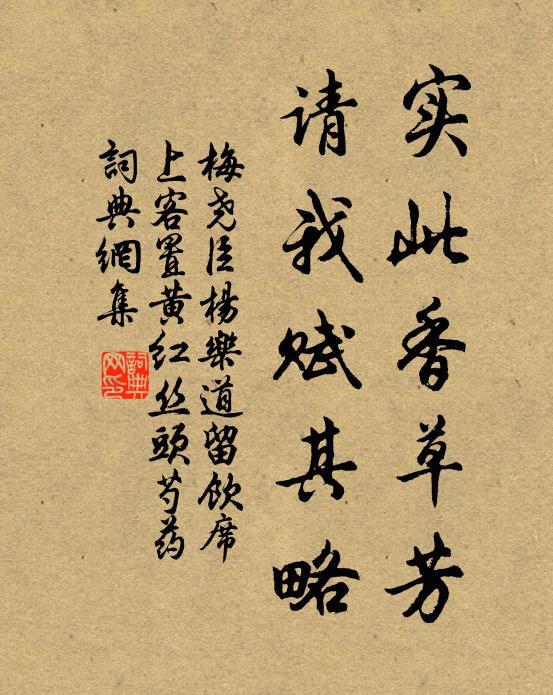 实此香草芳
请我赋其略
梅尧臣杨樂道留饮席
上客置黄红丝頭芍药
詞典網集
詞典网印